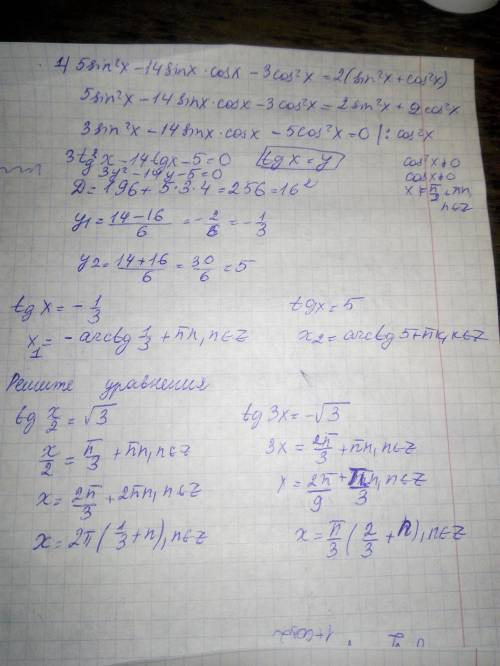 1) 5sin²x - 14sinx·cosx - 3cos²x = 2(sin²x + cos²x)
5sin²x - 14sinx·cosx - 3cos²x = 2sin²x + 2cos²x
3sin²x - 14sinx·cosx - 5cos²x = 0 |: cos²x
3tg²x - 14tgx - 5 = 0 tgx = y cos²x ≠ 0
3y² - 14y - 5 = 0 cosx ≠ 0
D = 196 + 5·3·4 = 256 = 16² x ≠ π/2 + πn,
n∈Z
y1 = (14-16)/6 = -2/6 = -1/3
y2 = (14+16)/6 = 30/6 = 5
tg x = -1/3 tgx = 5
x1 = -arctg 1/3 + πn, n∈Z x2 = arctg 5 + πn, n∈Z
Решите уравнения
tg x/2 = √3 tg 3x = -√3
x/2 = π/3 + πn, n∈Z 3x = 2π/3 + πn, n∈Z
x = 2π/3 + 2πn, n∈Z x = 2π/9 + πn/3, n∈Z
x = 2π(1/3 + n), n∈Z x = π/3(2/3 + n), n∈Z